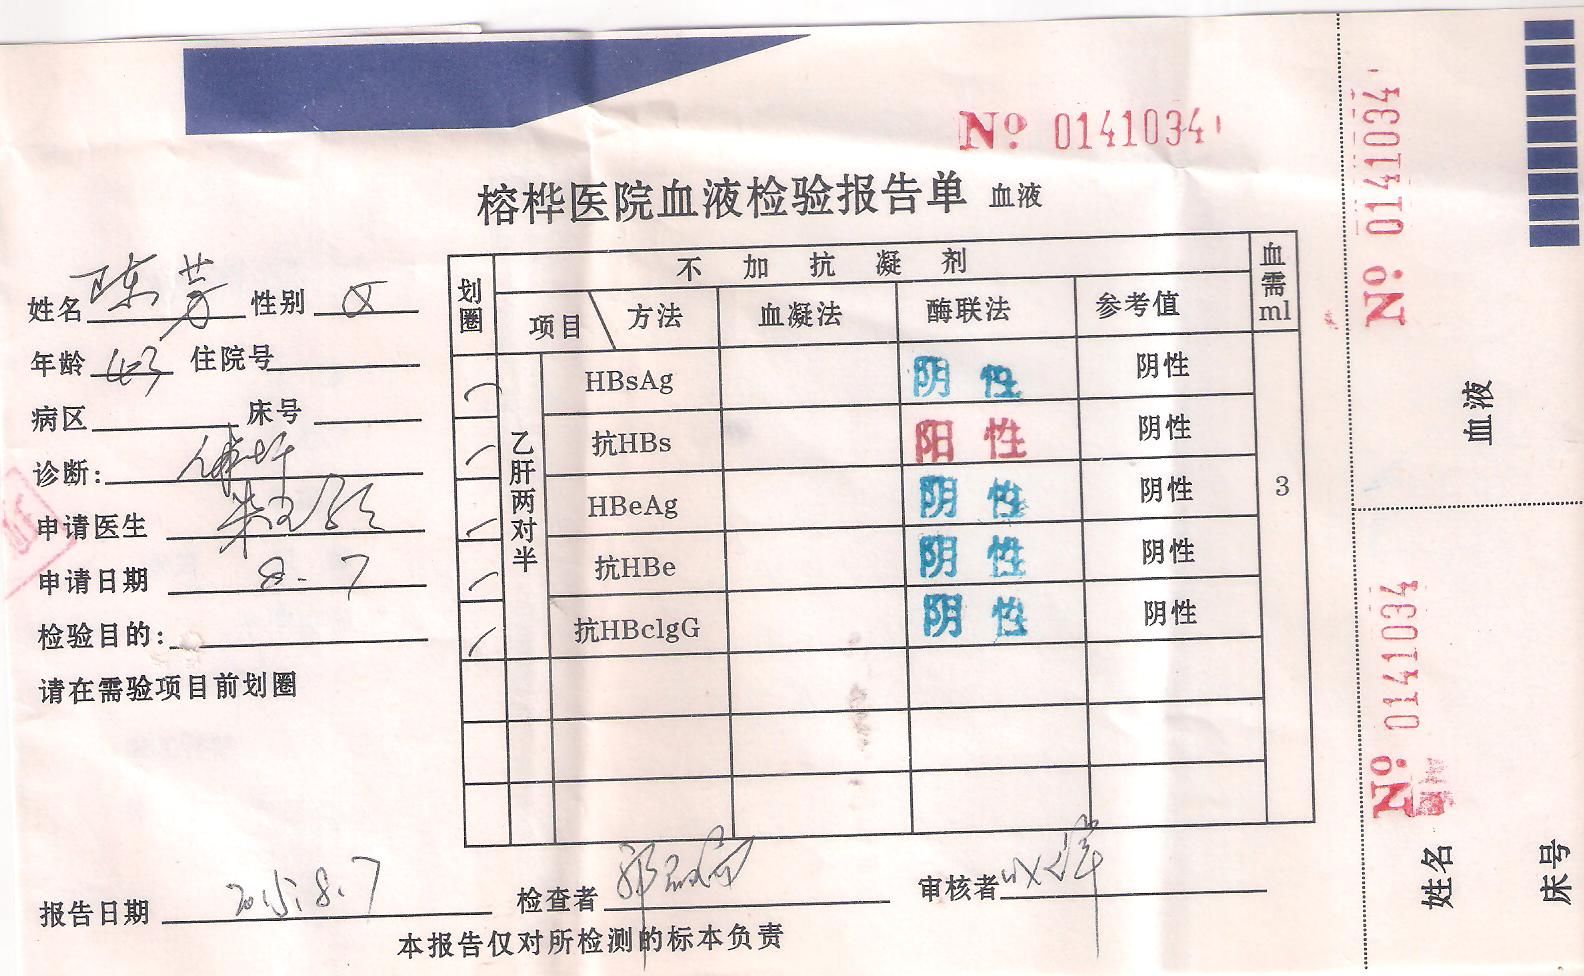 No. 0141034
榕桦医院血液检验报告单 血液
姓名 陈芳 性别 女
年龄 43 住院号
病区 床号
诊断: 体检
申请医生
申请日期 8.7
检验目的:
请在需验项目前划圈
划圈 不加抗凝剂 血需ml
项目 方法 血凝法 酶联法 参考值
乙肝两对半
HBsAg 阴性 阴性
抗HBs 阳性 阴性
HBeAg 阴性 阴性
抗HBe 阴性 阴性
抗HBclgG 阴性 阴性
3
报告日期 2015.8.7 检查者 审核者
本报告仅对所检测的标本负责
No. 0141034
血液
No. 0141034
姓名
床号